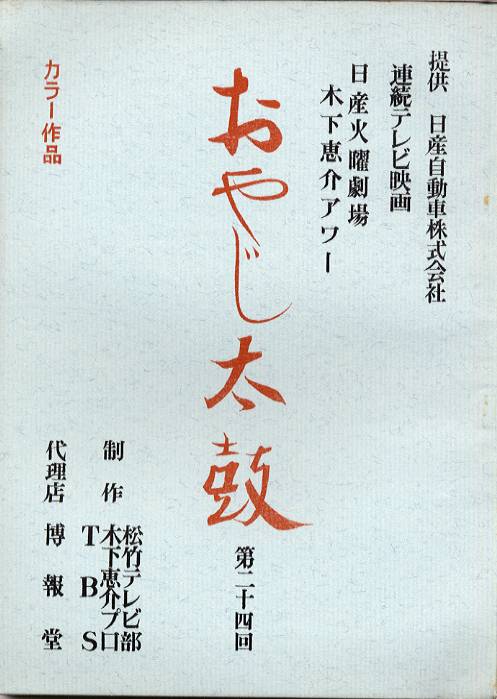 提供 日産自動車株式会社
連続テレビ映画
日産火曜劇場
木下恵介アワー
おやじ太鼓
第二十四回
カラー作品
制作
松竹テレビ部
木下恵介プロ
TBS
代理店 博報堂